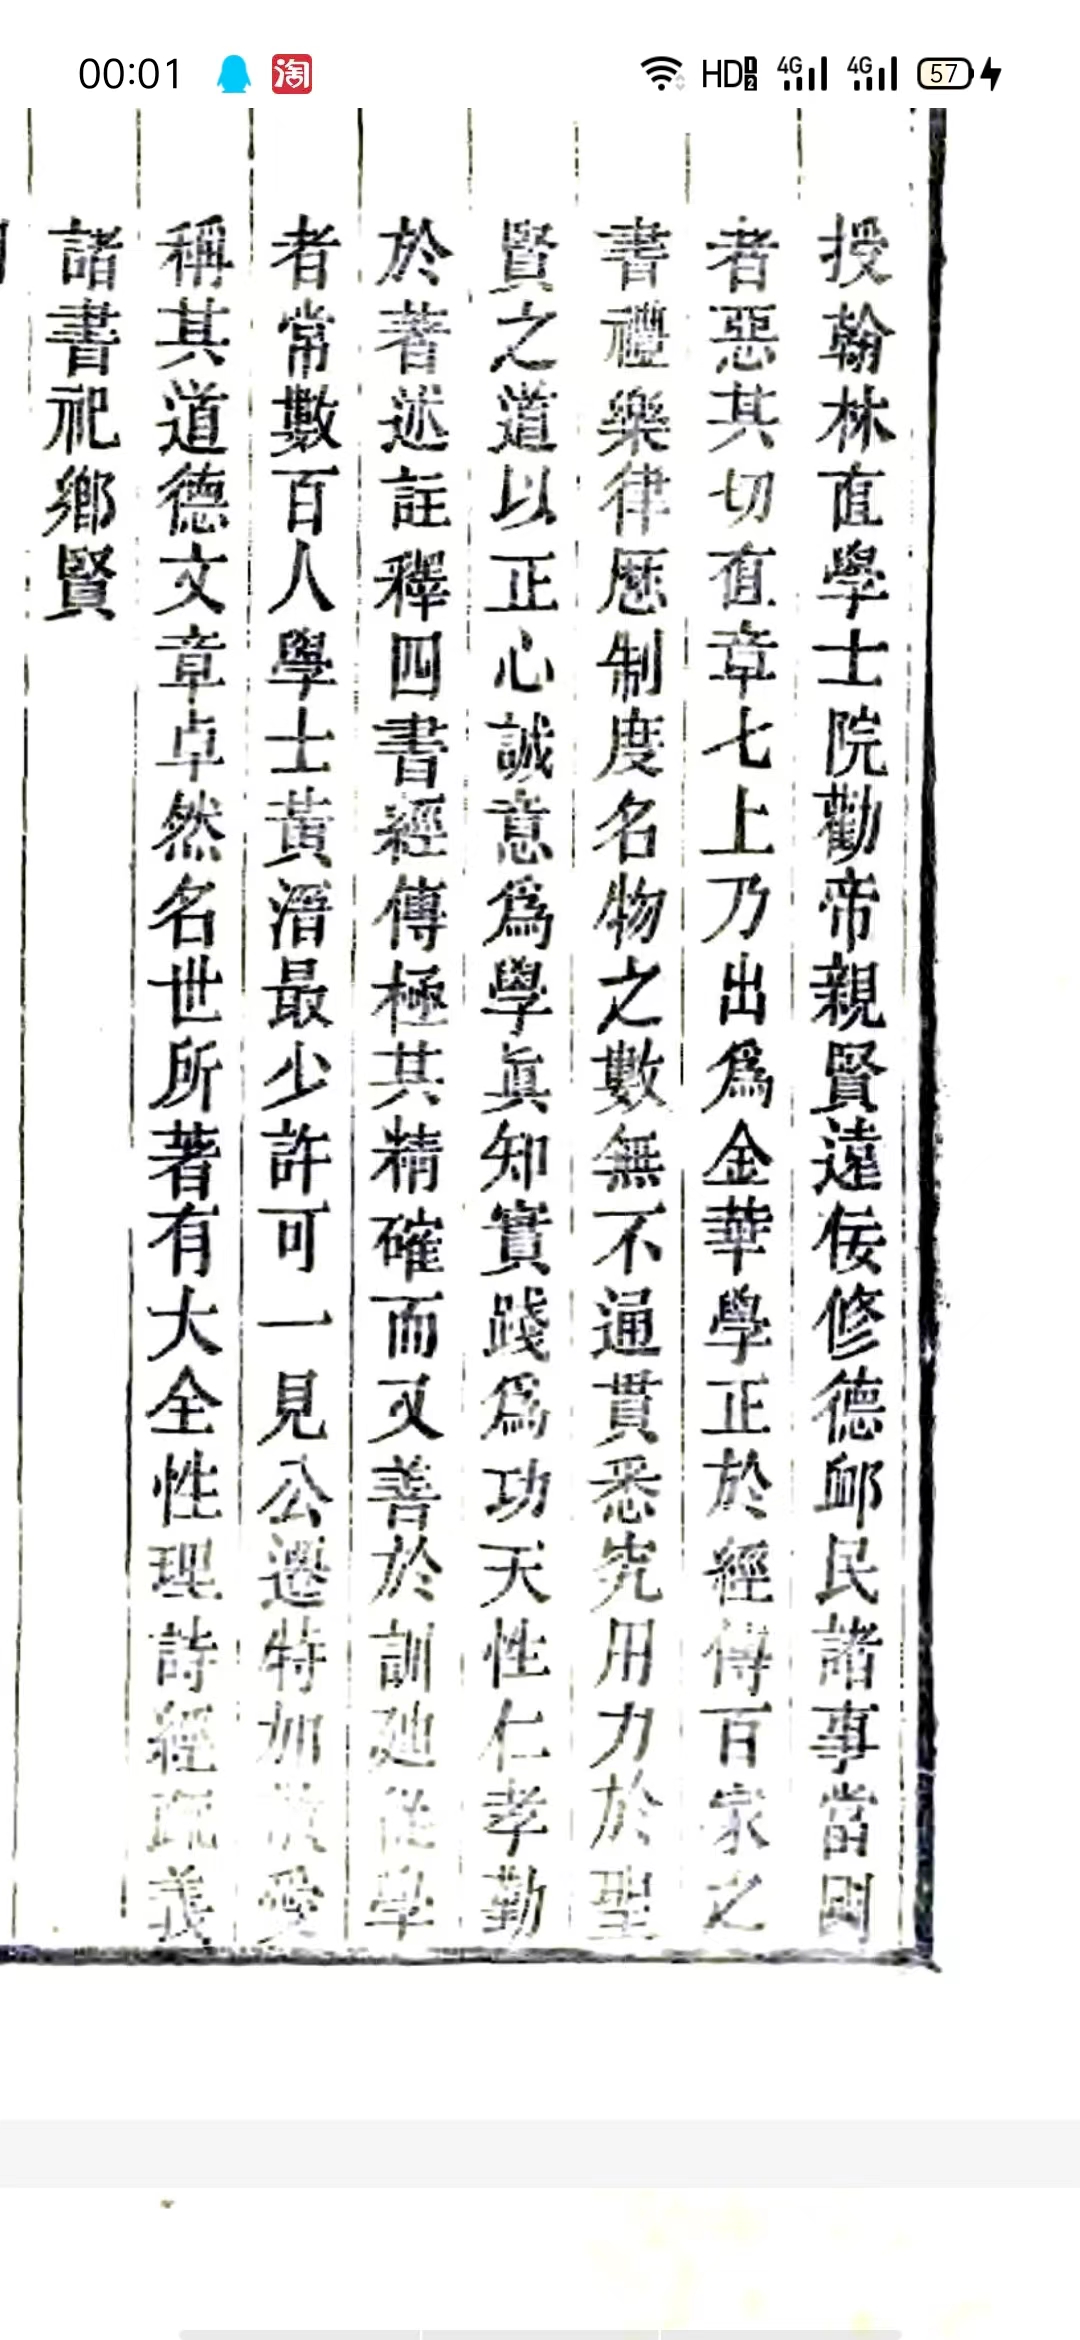 00:01 淘 HD 4G 4G 57
授翰林直學士院勸帝親賢遠佞修德䘏民諸事當國
者惡其切直章七上乃出爲金華學正於經傳百家之
書禮樂律厯制度名物之數無不通貫悉究用力於聖
賢之道以正心誠意爲學眞知實踐爲功天性仁孝勤
於著述註釋四書經傳極其精確而又善於訓廸從學
者常數百人學士黃溍最少許可一見公遷特加敬愛
稱其道德文章卓然名世所著有大全性理詩經疏義
諸書祀鄉賢